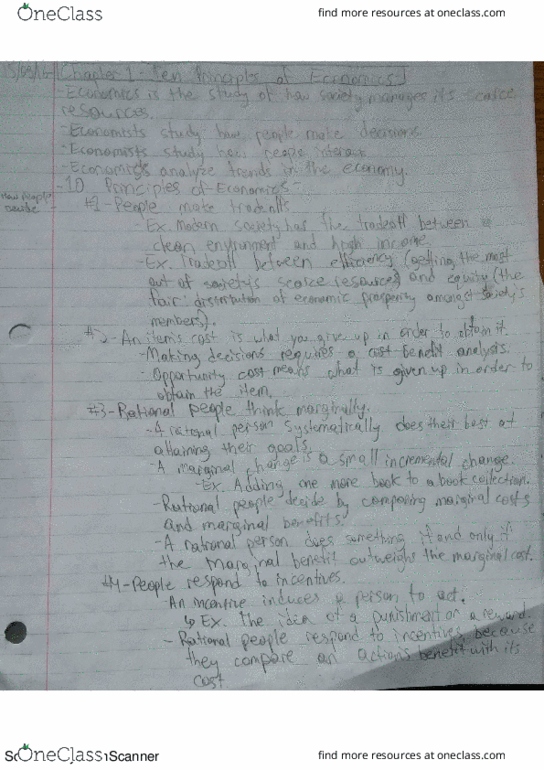 OneClass
find more resources at oneclass.com
Chapter 1 - Ten Principles of Economics
- Economics is the study of how society manages its scarce
resources.
- Economists study how people make decisions.
- Economists study how people interact.
- Economists analyze trends in the economy.
- 10 Principles of Economics -
How People
#1 - People make tradeoffs
- Ex. Modern society has the tradeoff between a
clean environment and high income
- Ex. Tradeoff between efficiency (getting the most
out of society's scarce resources) and equity (the
fair distribution of economic prosperity amongst society's
members).
#2 - An item's cost is what you give up in order to obtain it.
- Making decisions requires a cost benefit analysis.
- Opportunity cost means what is given up in order to
obtain the item.
#3 - Rational people think marginally.
- A rational person systematically does their best at
attaining their goals.
- A marginal change is a small incremental change.
- Ex. Adding one more book to a book collection.
- Rational people decide by comparing marginal costs
and marginal benefits.
- A rational person does something if and only if
the marginal benefit outweighs the marginal cost.
#4 - People respond to incentives.
- An incentive induces a person to act.
↳ Ex. The idea of a punishment or a reward
- Rational people respond to incentives because
they compare an actions benefit with its
cost
OneClass
Scanner
find more resources at oneclass.com